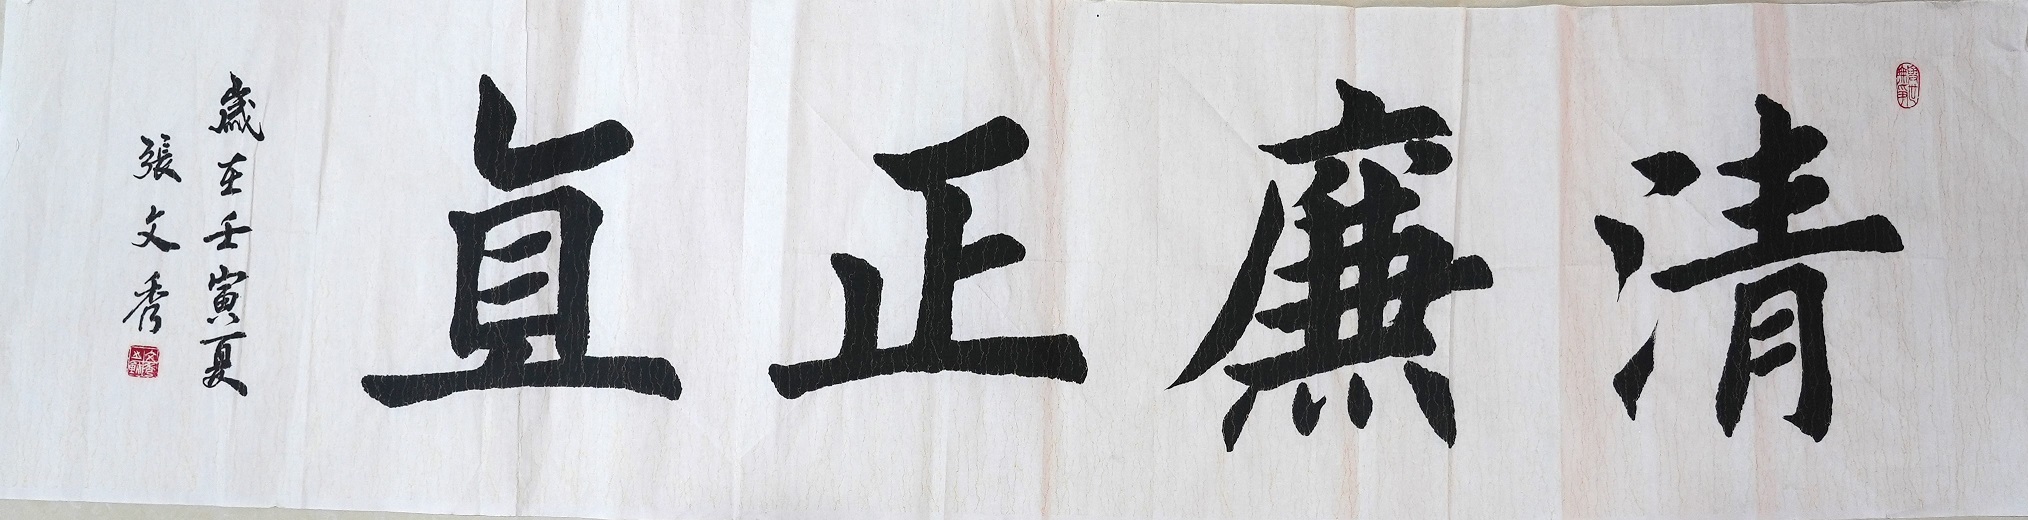 清廉正直
歲在壬寅夏
張文秀